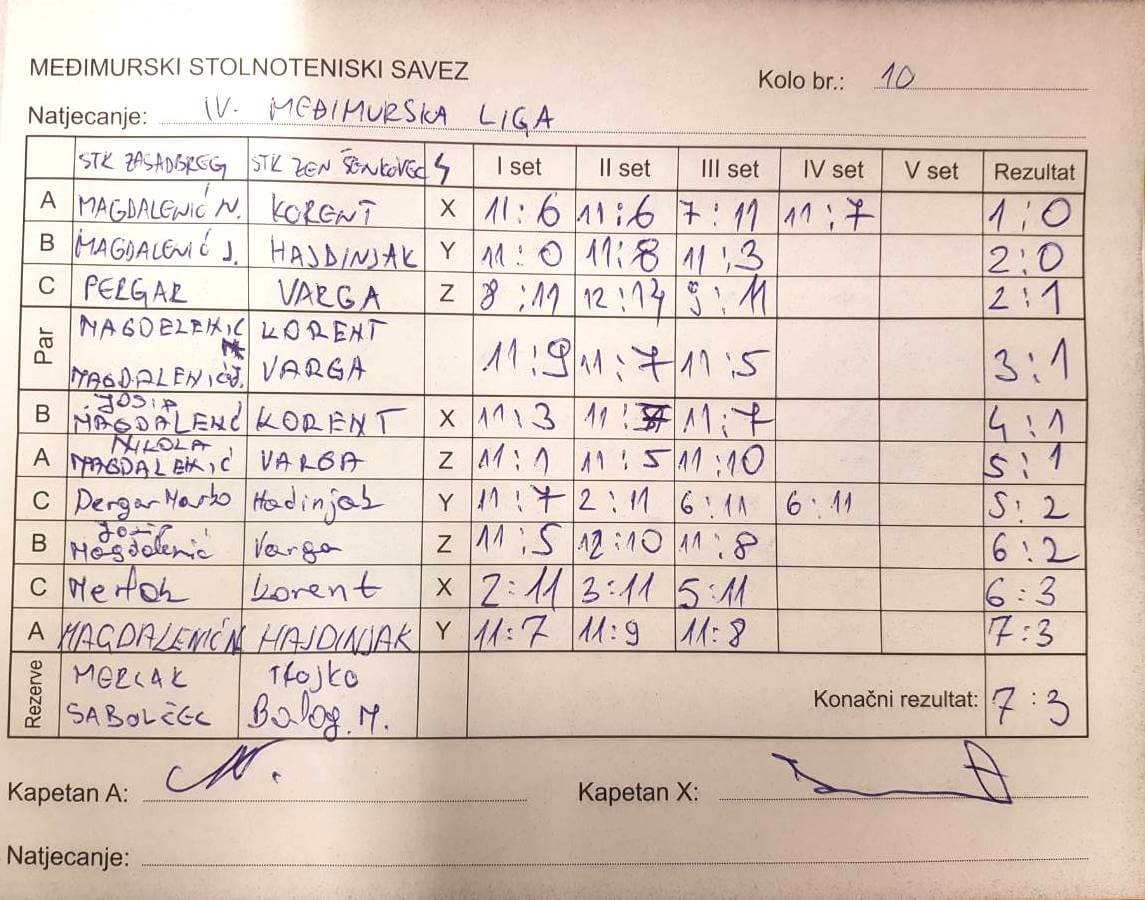 MEĐIMURSKI STOLNOTENISKI SAVEZ
Kolo br.: 10
Natjecanje: IV. MEĐIMURSKA LIGA
STK ZASADBREG STK ZEN ŠENKOVEC I set II set III set IV set V set Rezultat
A MAGDALENIĆ N. KORENT X 11:6 11:6 7:11 11:7 1:0
B MAGDALENIĆ J. HAJDINJAK Y 11:0 11:8 11:3 2:0
C PERGAR VARGA Z 8:11 12:14 9:11 2:1
Par MAGDELENIC KORENT
MAGDALENIĆ J. VARGA 11:9 11:7 11:5 3:1
JOSIP
B MAGDALENIĆ KORENT X 11:3 11: 11:7 4:1
NIKOLA
A MAGDALENIĆ VARGA Z 11:1 11:5 11:10 5:1
C Pergar Marko Hadinjak Y 11:7 2:11 6:11 6:11 5:2
Josip
B Magdalenić Varga Z 11:5 12:10 11:8 6:2
C Korent X 2:11 3:11 5:11 6:3
A MAGDALENIĆ N HAJDINJAK Y 11:7 11:9 11:8 7:3
Rezerve MERLAK Trojko
SABOLČEC Balog M. Konačni rezultat: 7:3
Kapetan A: Kapetan X:
Natjecanje: